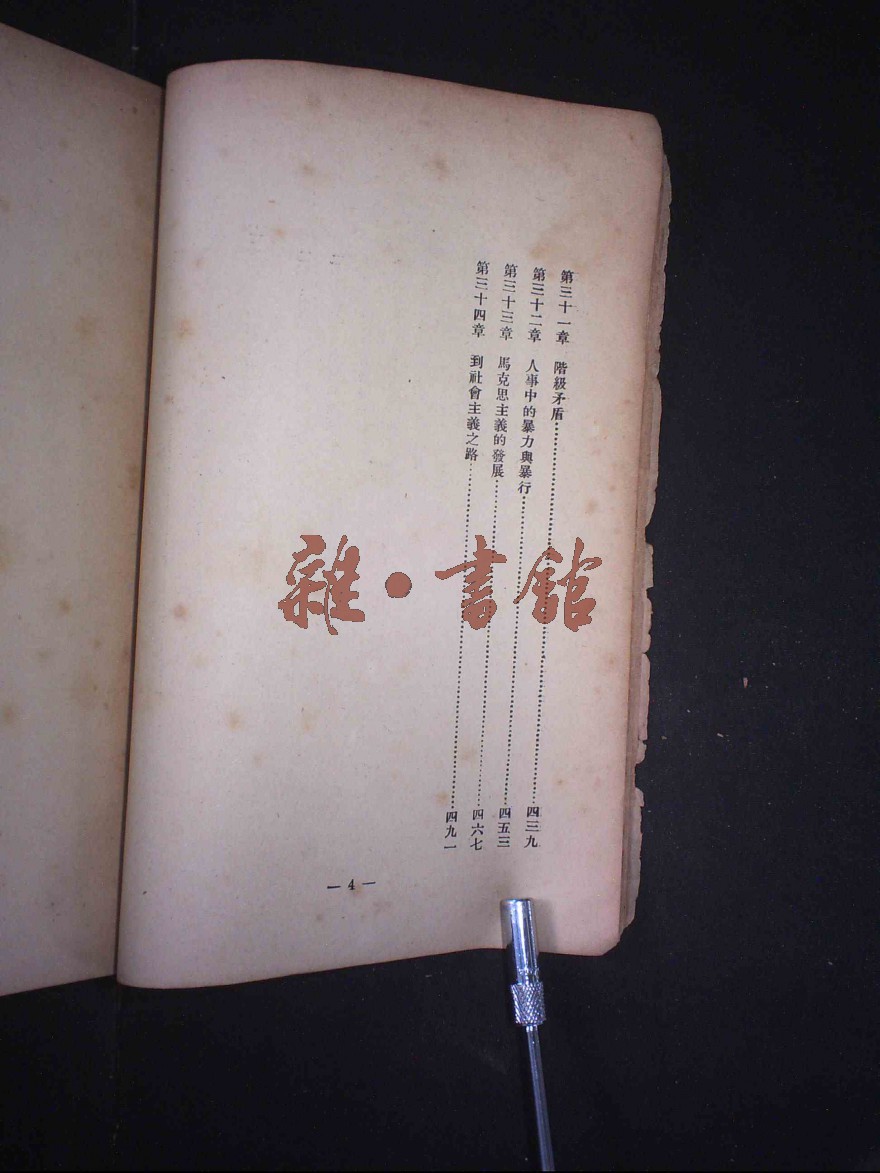 第三十一章　階級矛盾……四三九
第三十二章　人事中的暴力與暴行……四五三
第三十三章　馬克思主義的發展……四六七
第三十四章　到社會主義之路……四九一
— 4 —
雜·書館